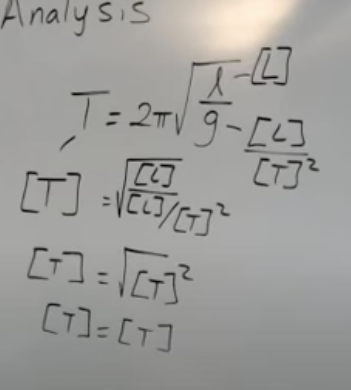 Analysis
T = 2π√(l/g) - [L]
- [L]/[T]²
[T] = √([L]/[L]/[T]²)
[T] = √[T]²
[T] = [T]